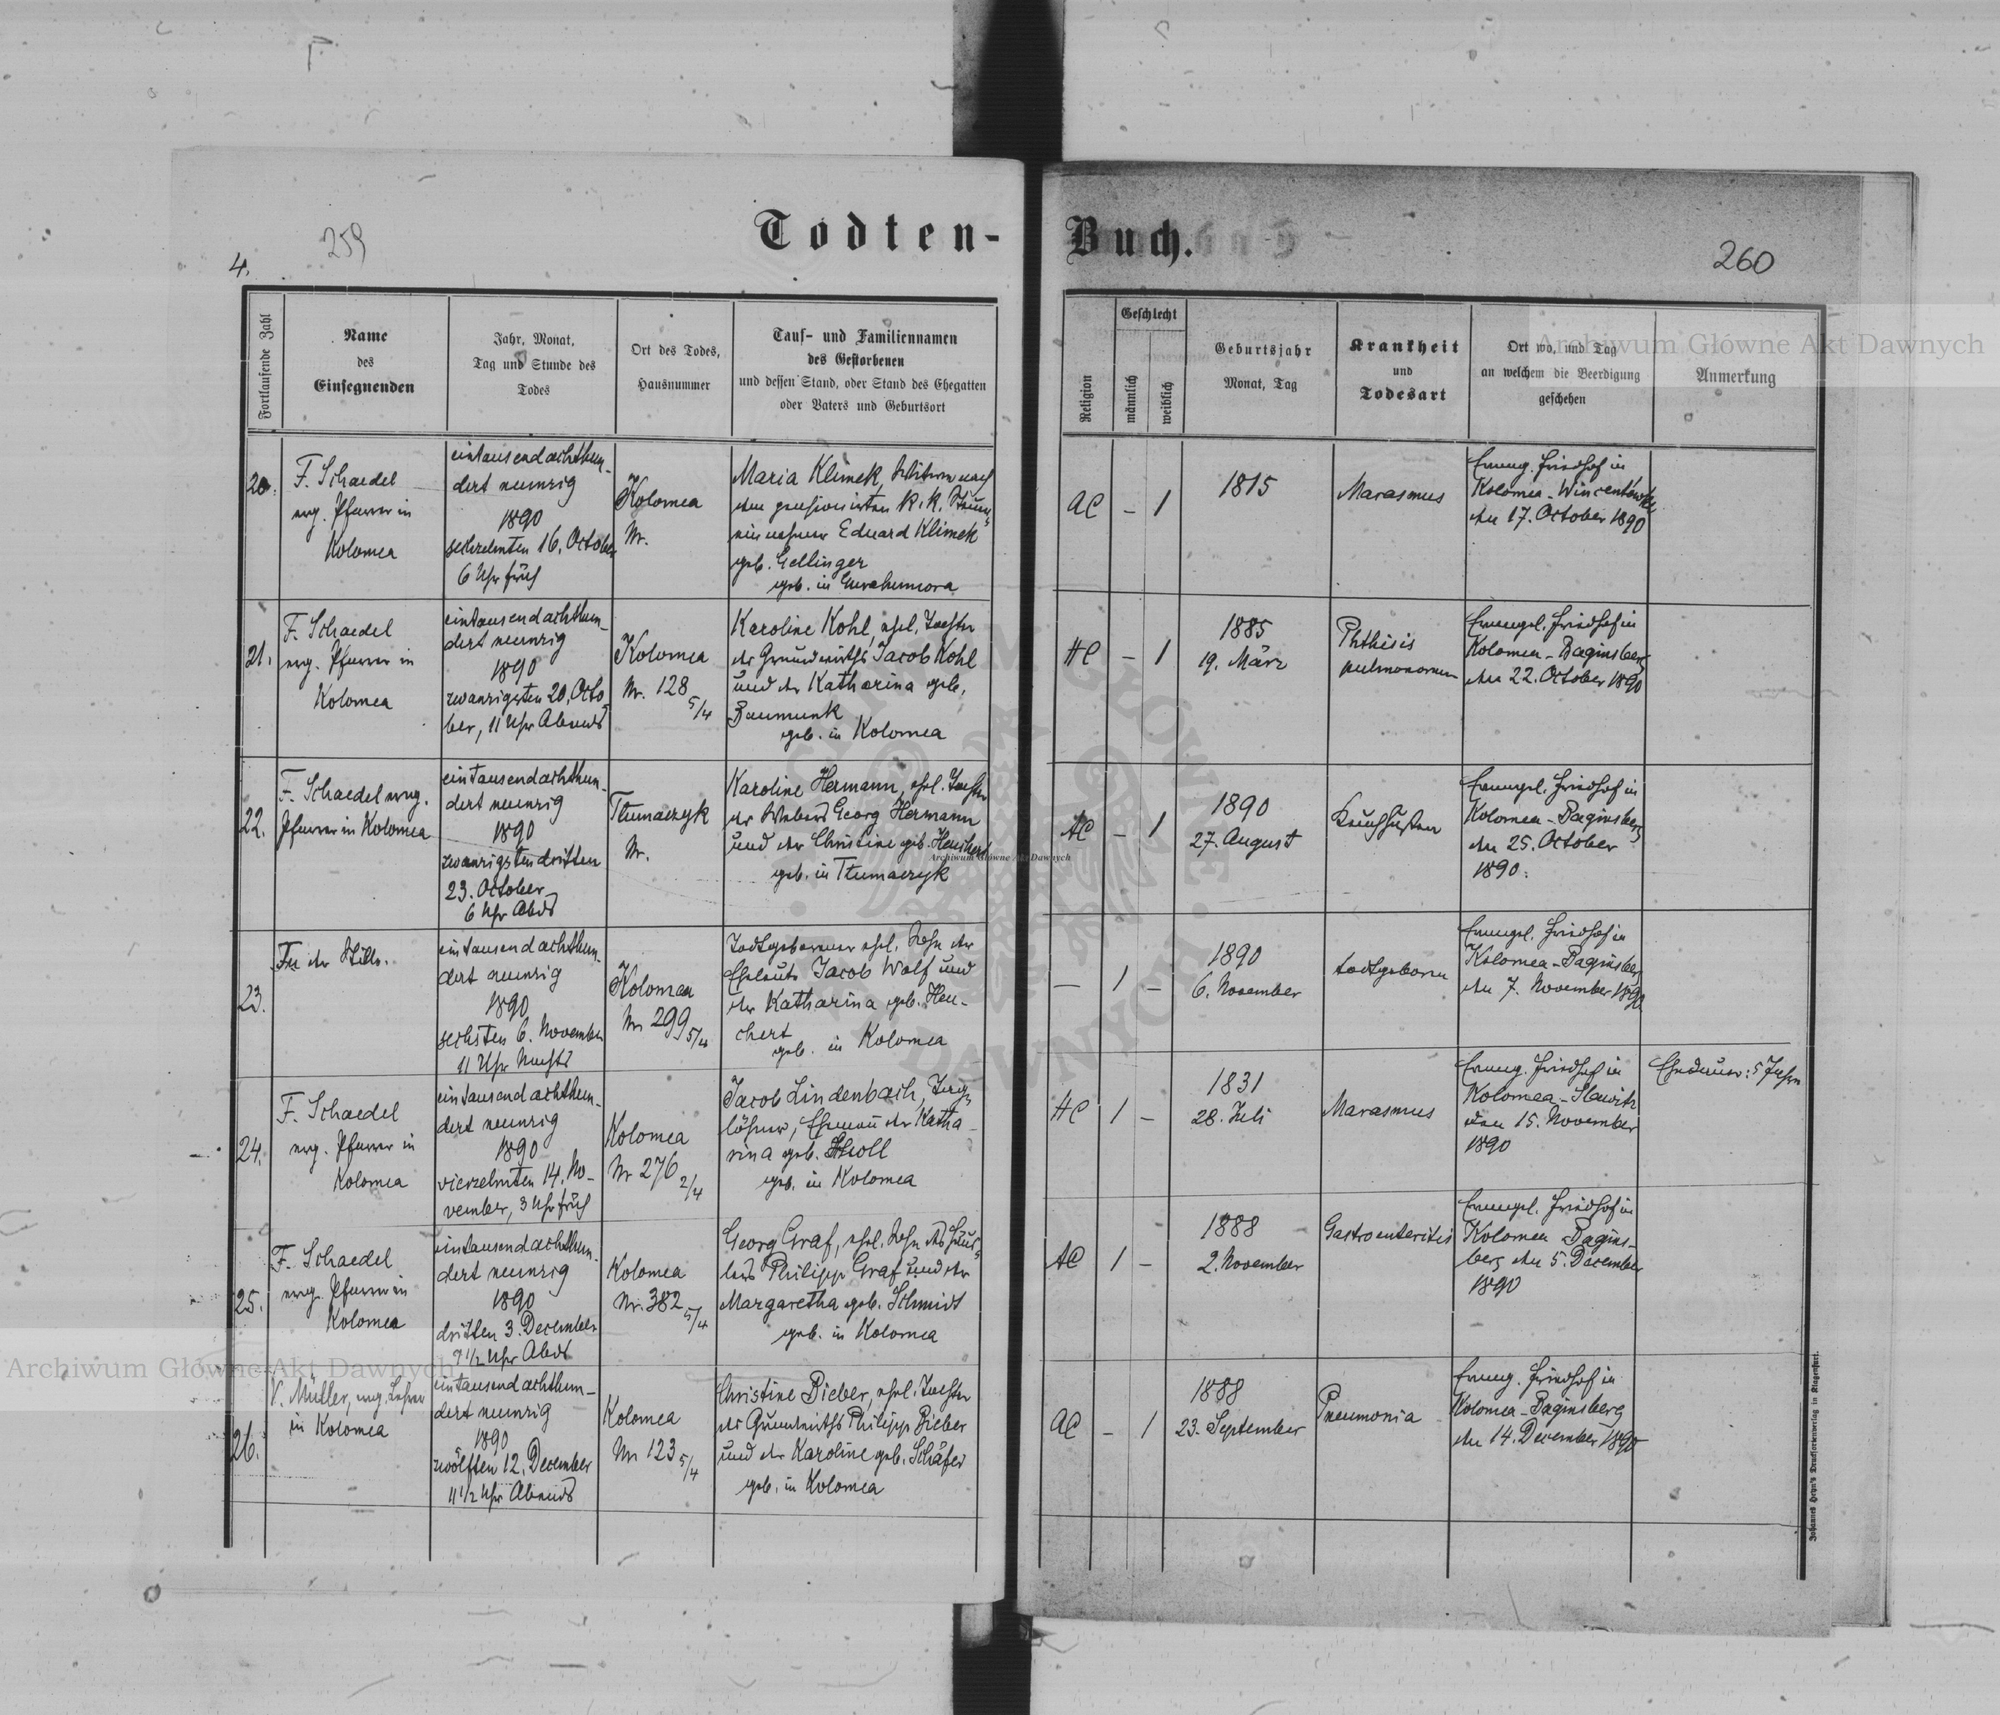 Todten-
Buch.
259
4.
260
Fortlaufende Zahl
Name
des
Einsegnenden
Jahr, Monat,
Tag und Stunde des
Todes
Ort des Todes,
Hausnummer
Tauf- und Familiennamen
des Gestorbenen
und dessen Stand, oder Stand des Ehegatten
oder Vaters und Geburtsort
Religion
Geschlecht
männlich
weiblich
Geburtsjahr
Monat, Tag
Krankheit
und
Todesart
Ort wo, und Tag
an welchem die Beerdigung
geschehen
Anmerkung
20.
F. Schaedel
evg. Pfarrer in
Kolomea
eintausendachthun-
dert neunzig
1890
sechzehnten 16. October
6 Uhr früh
Kolomea
Nr.
Maria Klimek, Witwe nach
dem pensionirten k. k. Steuer-
einnehmer Eduard Klimek
geb. Gellinger
geb. in Gurahumora
AC
– 1
1815
Marasmus
Evang. Friedhof in
Kolomea-Wincentówka
den 17. October 1890
21.
F. Schaedel
evg. Pfarrer in
Kolomea
eintausendachthun-
dert neunzig
1890
zwanzigsten 20. Octo-
ber, 11 Uhr Abends
Kolomea
Nr. 128 5/4
Karoline Kohl, ehel. Tochter
des Grundwirths Jacob Kohl
und der Katharina geb.
Baumunk
geb. in Kolomea
HC
– 1
1885
19. März
Phthisis
pulmonorum
Evangel. Friedhof in
Kolomea-Baginsberg
den 22. October 1890
22.
F. Schaedel evng.
Pfarrer in Kolomea
eintausendachthun-
dert neunzig
1890
zwanzigsten dritten
23. October
6 Uhr Abds
Tłumaczyk
Nr.
Karoline Hermann, ehel. Tochter
des Webers Georg Hermann
und der Christine geb.
geb. in Tłumaczyk
AC
– 1
1890
27. August
Keuchhusten
Evangel. Friedhof in
Kolomea-Baginsberg
den 25. October
1890.
23.
In der Stille.
eintausendachthun-
dert neunzig
1890
sechsten 6. November
11 Uhr Nachts
Kolomea
Nr 299 5/4
Todtgeborener ehel. Sohn der
Eheleute Jacob Wolf und
der Katharina geb. Heu-
chert
geb. in Kolomea
–
1 –
1890
6. November
todtgeboren
Evangel. Friedhof in
Kolomea-Baginsberg
den 7. November 1890
24.
F. Schaedel
evg. Pfarrer in
Kolomea
eintausendachthun-
dert neunzig
1890
vierzehnten 14. No-
vember, 3 Uhr früh
Kolomea
Nr 276 2/4
Jacob Lindenbach, Tag-
löhner, Ehemann der Katha-
rina geb.
geb. in Kolomea
HC
1 –
1831
28. Juli
Marasmus
Evang. Friedhof in
Kolomea-Slawitz
den 15. November
1890
Ehedauer: 5 Jahre
25.
F. Schaedel
evng. Pfarrer in
Kolomea
eintausendachthun-
dert neunzig
1890
dritten 3. December
9 1/2 Uhr Abds
Kolomea
Nr. 382 5/4
Georg Graf, ehel. Sohn des Häus-
lers Philipp Graf und der
Margaretha geb. Schmidt
geb. in Kolomea
AC
1 –
1888
2. November
Gastroenteritis
Evangel. Friedhof in
Kolomea Bagins-
berg den 5. December
1890
26.
V. Müller, evg. Lehrer
in Kolomea
eintausendachthun-
dert neunzig
1890
zwölften 12. December
11 1/2 Uhr Abends
Kolomea
Nr 123 5/4
Christine Bieber, ehel. Tochter
des Grundwirths Philipp Bieber
und der Karoline geb. Schäfer
geb. in Kolomea
AC
– 1
1888
23. September
Pneumonia
Evang. Friedhof in
Kolomea-Baginsberg
den 14. December 1890
Johannes Heyn's Drucksortenverlag in Klagenfurt.
Archiwum Główne Akt Dawnych
Archiwum Główne Akt Dawnych
Archiwum Główne Akt Dawnych